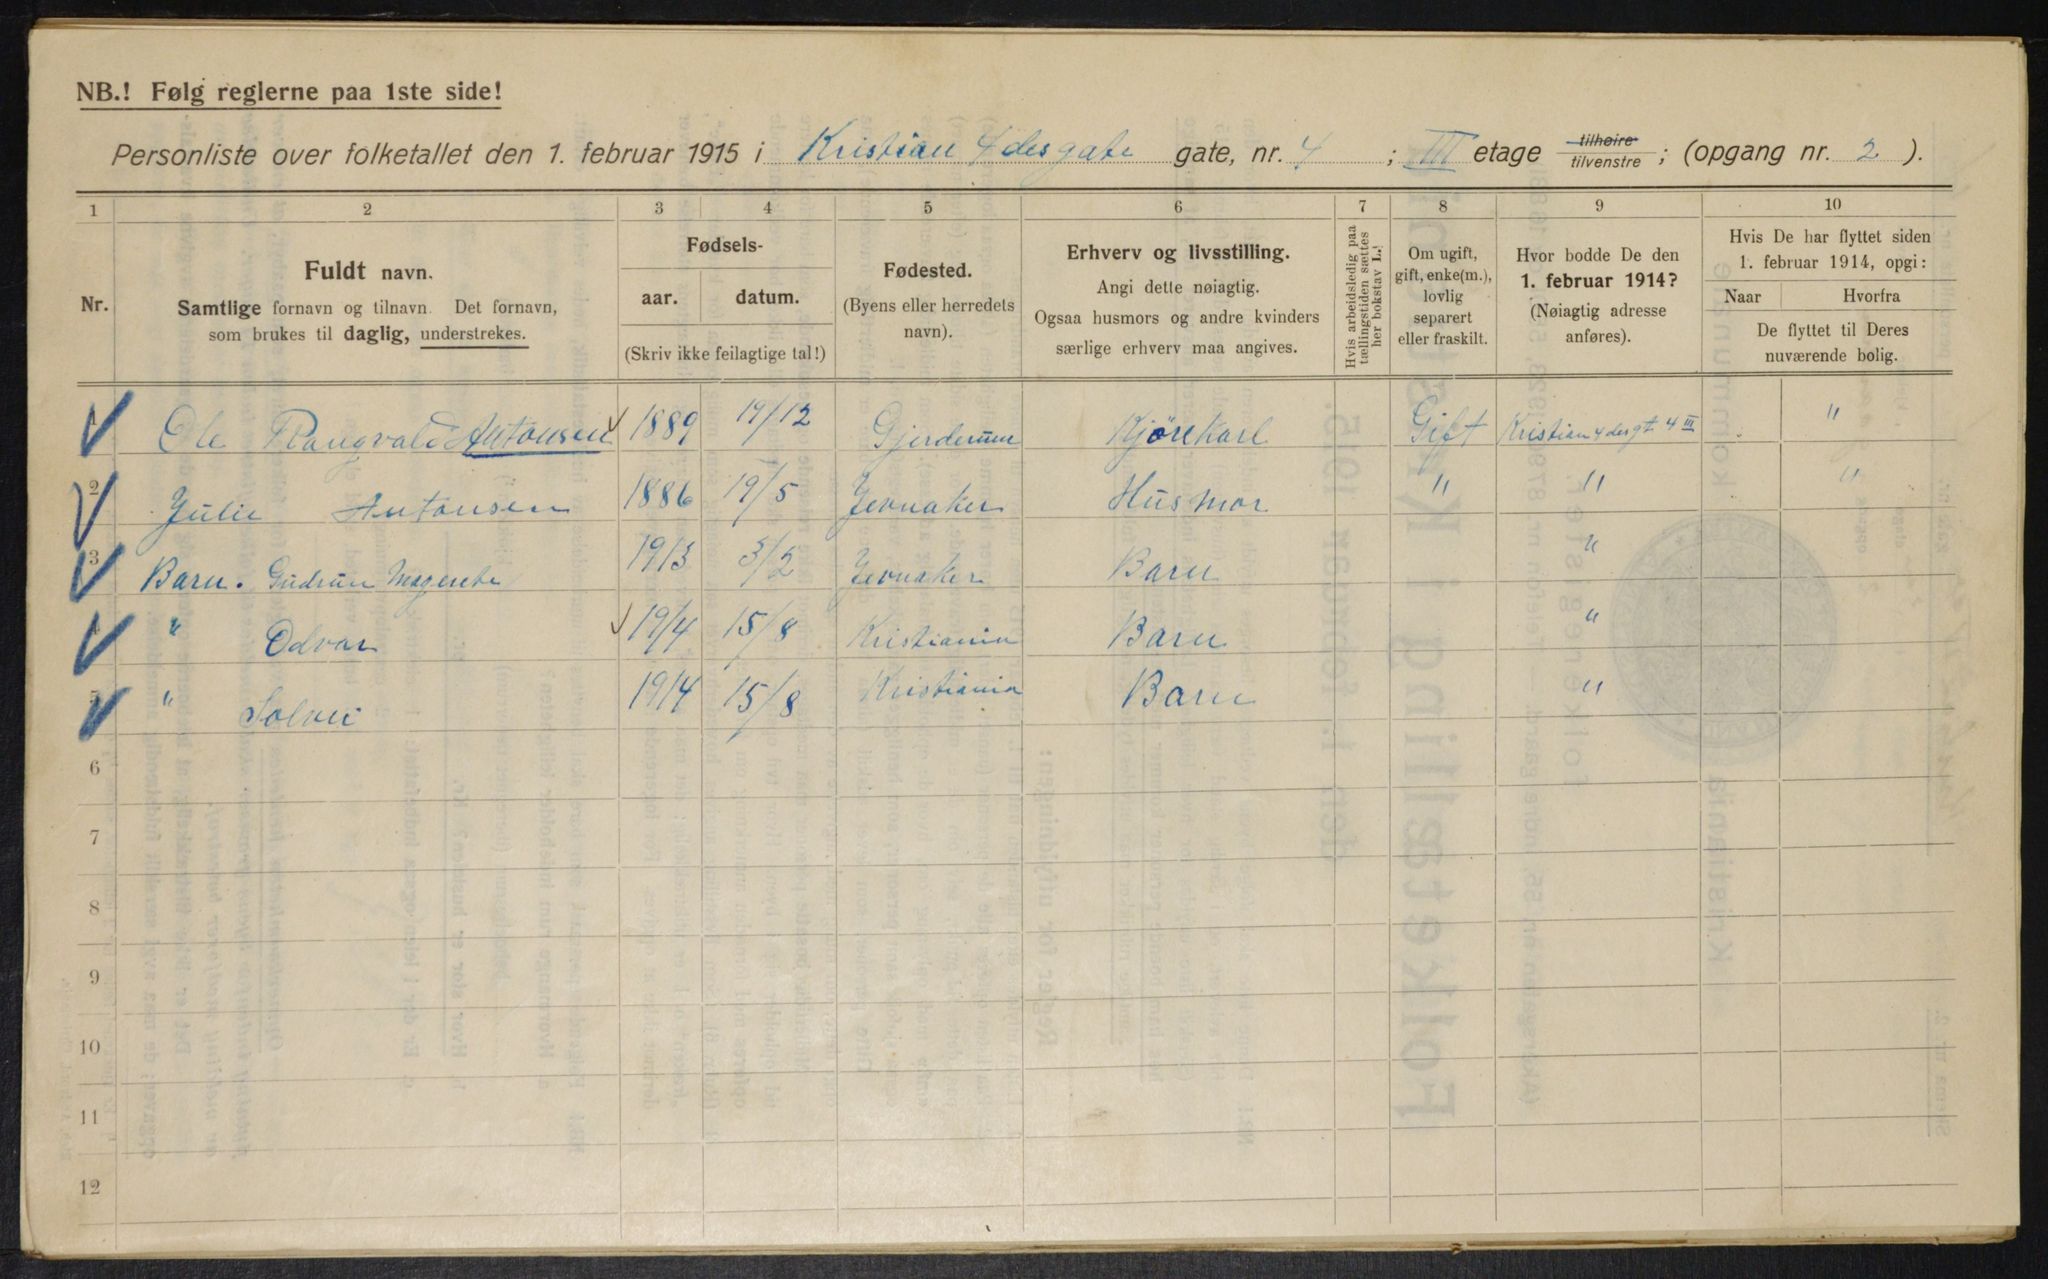 NB.! Følg reglerne paa 1ste side!
Personliste over folketallet den 1. februar 1915 i Kristian 4des gate gate, nr. 4 ; III etage tilhøire tilvenstre ; (opgang nr. 2 ).
1 2 3 4 5 6 7 8 9 10
Nr.
Fuldt navn.
Samtlige fornavn og tilnavn. Det fornavn,
som brukes til daglig, understrekes.
Fødsels-
aar. datum.
(Skriv ikke feilagtige tal!)
Fødested.
(Byens eller herredets
navn).
Erhverv og livsstilling.
Angi dette nøiagtig.
Ogsaa husmors og andre kvinders
særlige erhverv maa angives.
Hvis arbeidsledig paa
tællingstiden sættes
her bokstav L.!
Om ugift,
gift, enke(m.),
lovlig
separert
eller fraskilt.
Hvor bodde De den
1. februar 1914?
(Nøiagtig adresse
anføres).
Hvis De har flyttet siden
1. februar 1914, opgi:
Naar Hvorfra
De flyttet til Deres
nuværende bolig.
1 Ole Rangvald Antonsen 1889 19/12 Gjerderum Kjørekarl Gift Kristian 4des gt. 4 III "
2 Julie Antonsen 1886 19/5 Jevnaker Husmor " " "
3 Barn. Gudrun Magerete 1913 3/2 Jevnaker Barn "
4 " Odvar 1914 15/8 Kristiania Barn "
5 " Solvei 1914 15/8 Kristiania Barn "
6
7
8
9
10
11
12